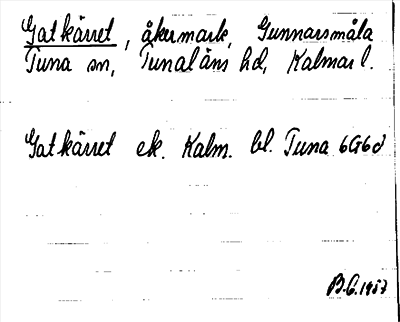 Gatkärret, åkermark, Gunnarsmåla
Tuna sn, Tunaläns hd, Kalmar l.
Gatkärret ek. Kalm. bl. Tuna 6G6d
B.G. 1957